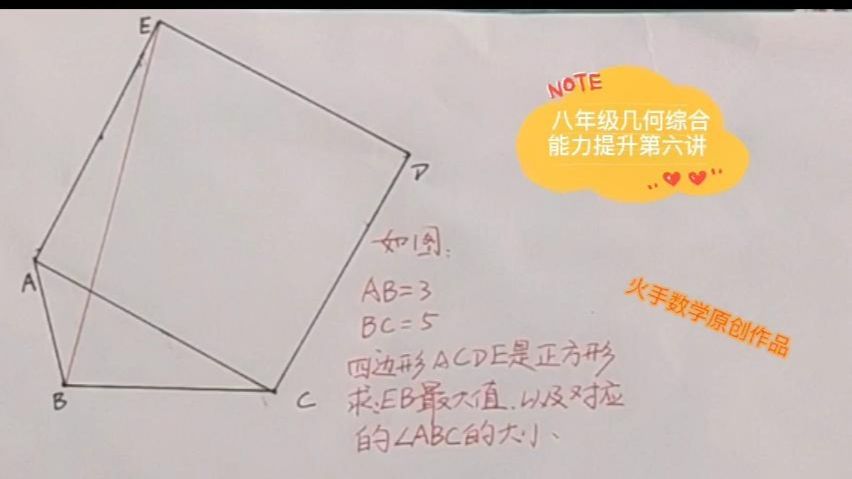 E
NOTE
八年级几何综合
能力提升第六讲
D
如图:
A
AB=3
火手数学原创作品
BC=5
四边形ACDE是正方形
B
C
求:EB最大值.以及对应
的∠ABC的大小、